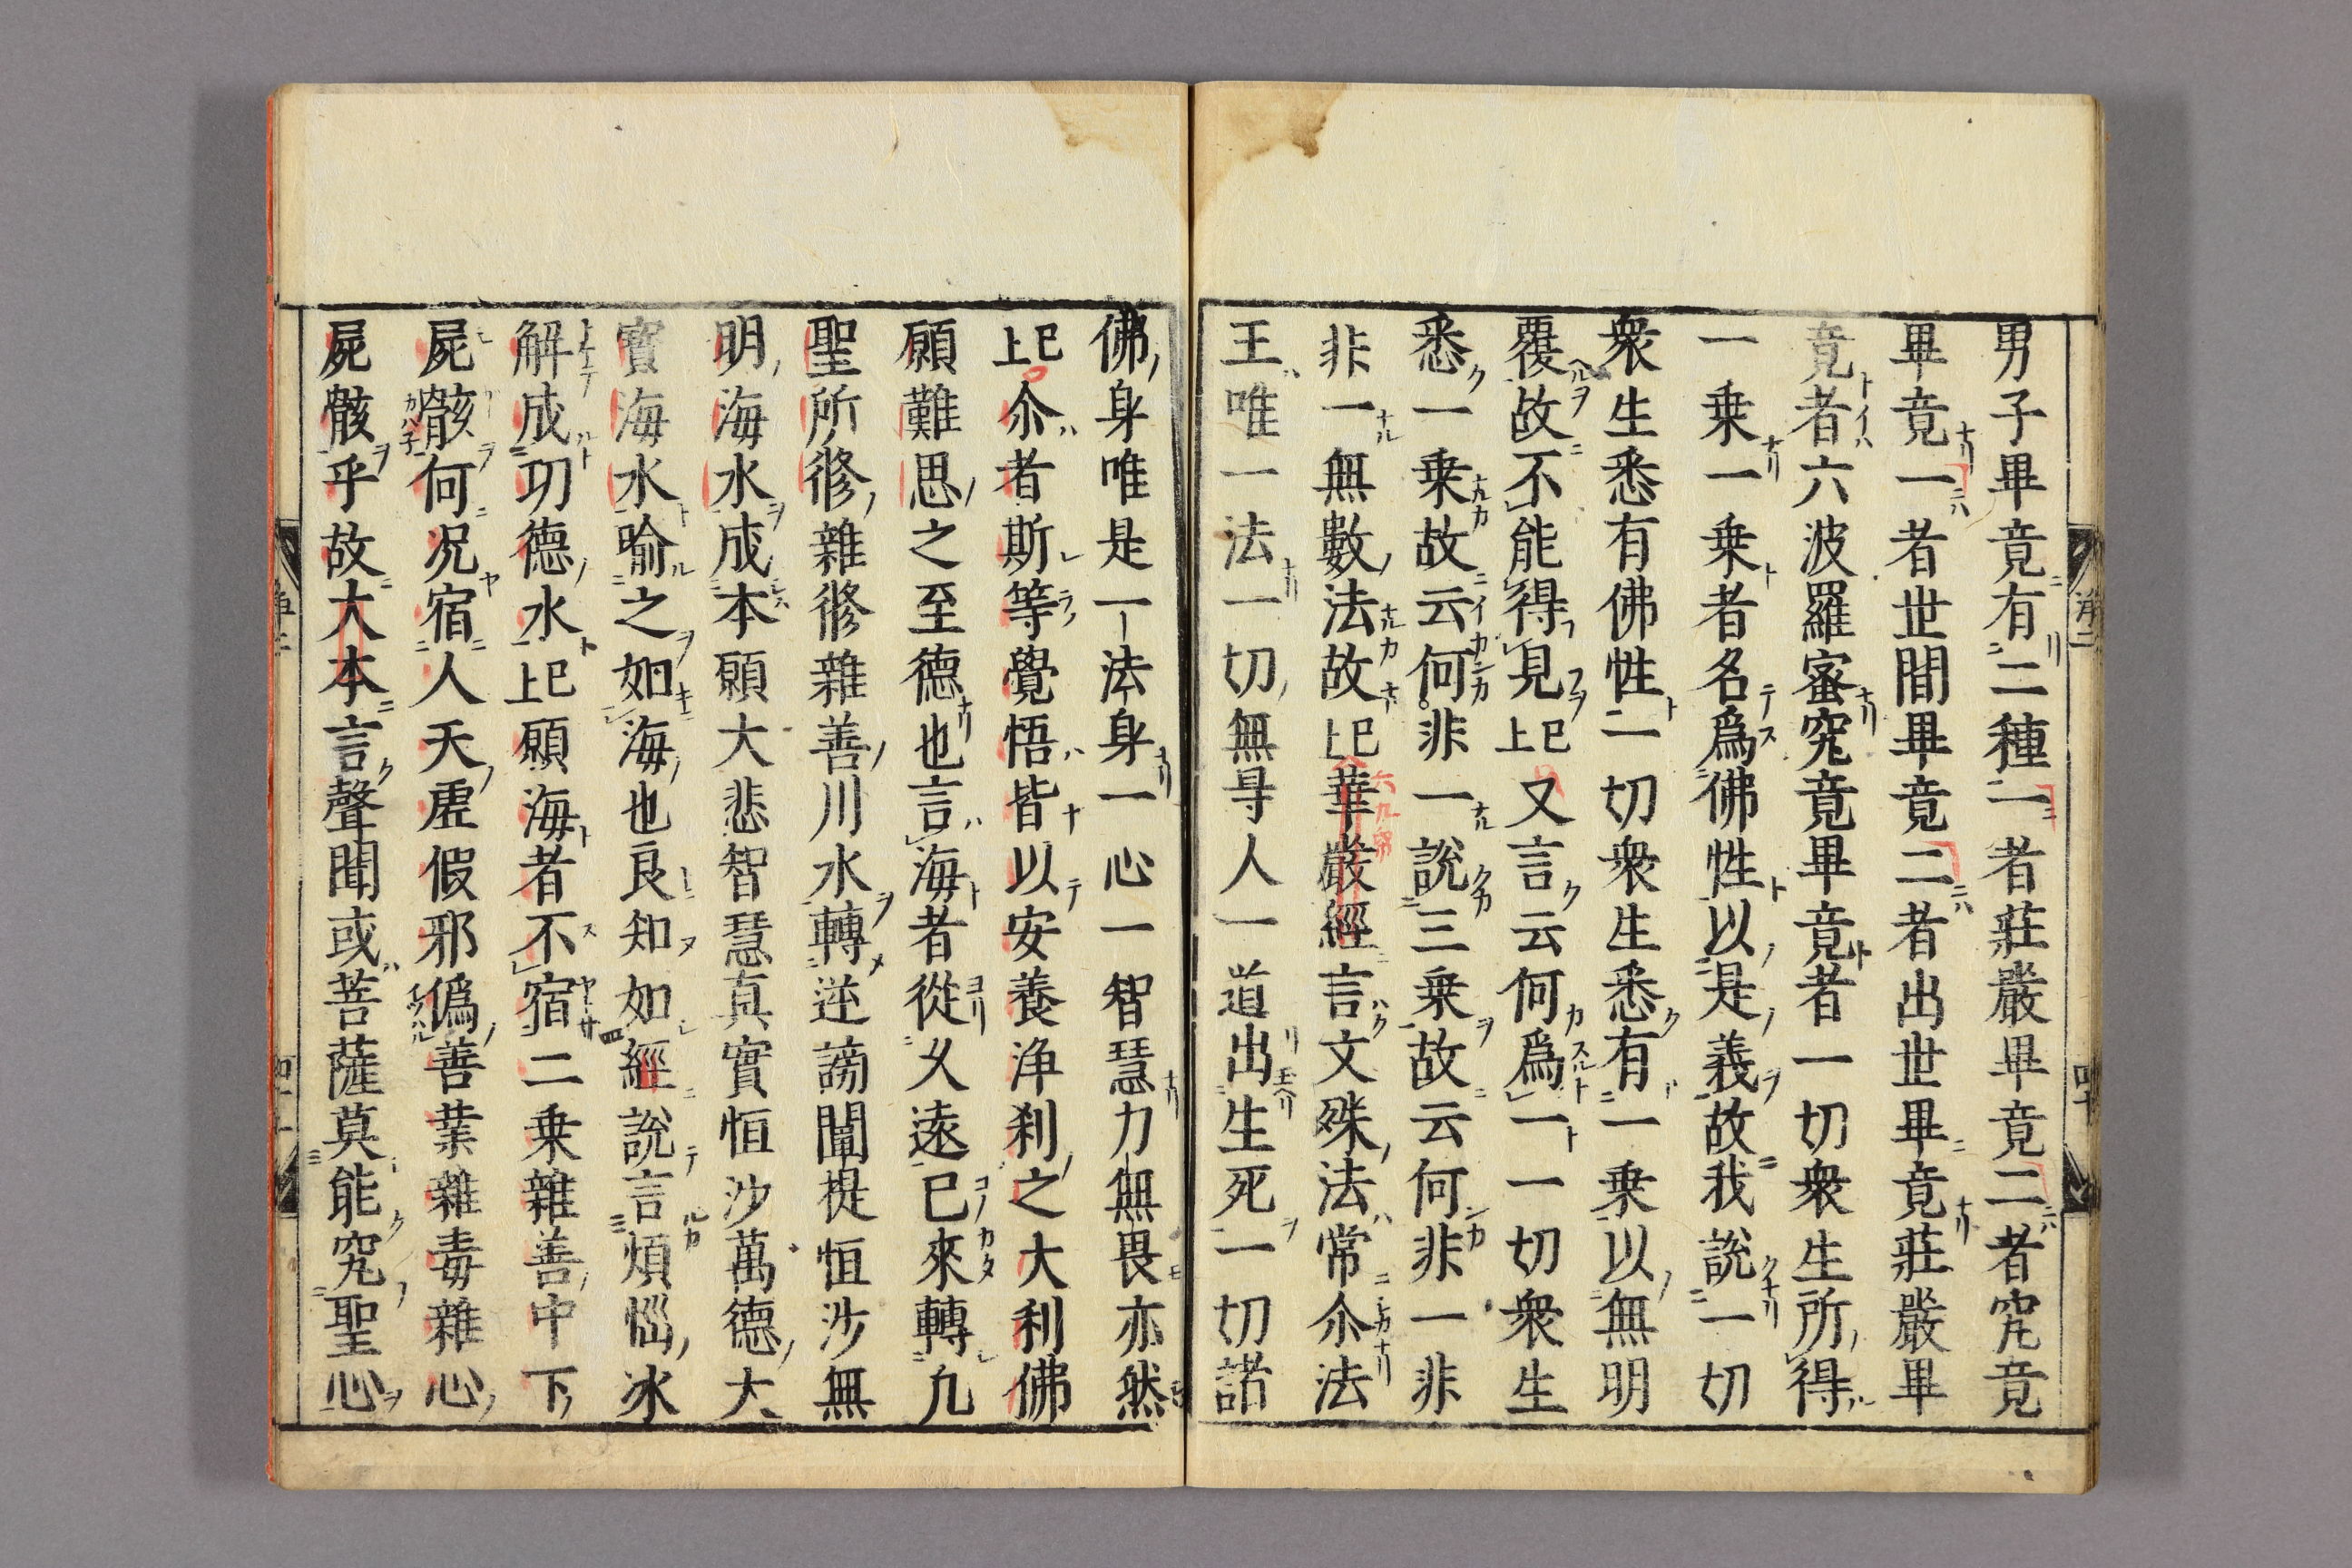 男子畢竟有二種一者莊嚴畢竟二者究竟
畢竟一者世間畢竟二者出世畢竟莊嚴畢
竟者六波羅蜜究竟畢竟者一切衆生所得
一乗一乗者名爲佛性以是義故我說一切
衆生悉有佛性一切衆生悉有一乗以無明
覆故不能得見上已又言云何爲一一切衆生
悉一乗故云何非一說三乗故云何非一非
非一無數法故上已華嚴經言文殊法常尒法
王唯一法一切無㝵人一道出生死一切諸
佛身唯是一法身一心一智慧力無畏亦然
上已尒者斯等覺悟皆以安養浄刹之大利佛
願難思之至德也言海者從久遠已來轉凢
聖所修雜修雜善川水轉逆謗闡提恒沙無
明海水成本願大悲智慧真實恒沙萬德大
寶海水喻之如海也良知如經說言煩惱冰
解成功德水上已願海者不宿二乗雜善中下
屍骸何況宿人天虛假邪僞善業雜毒雜心
屍骸乎故大本言聲聞或菩薩莫能究聖心